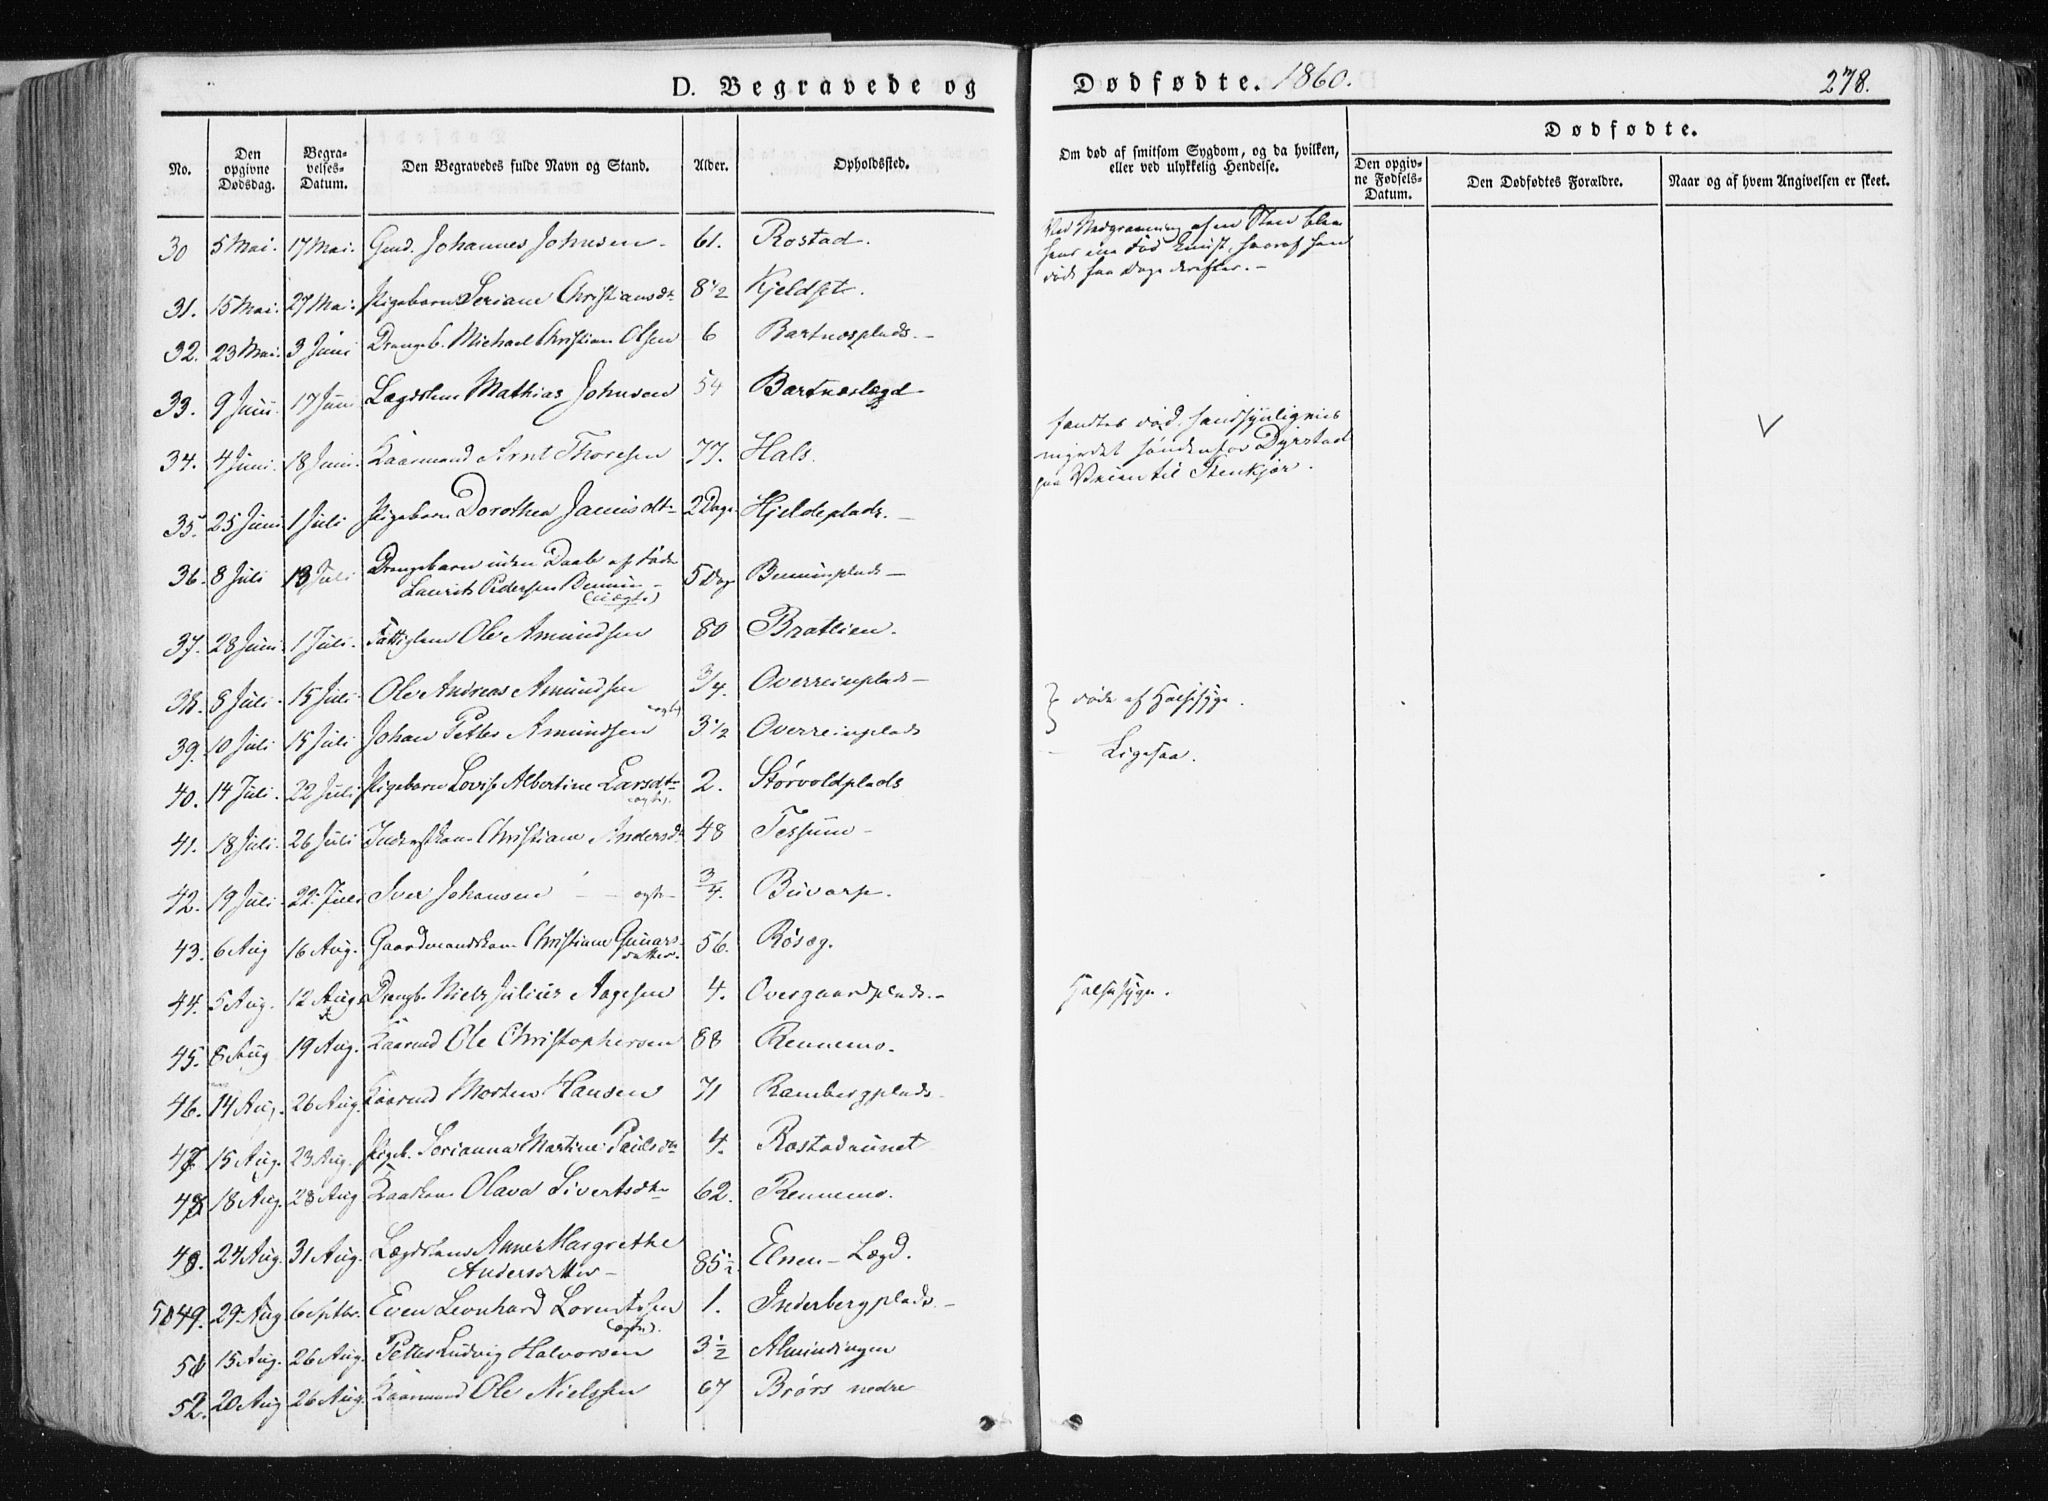 D. Begravede og Dødfødte. 1860. 278.
No. Den opgivne Dødsdag. Begravelses-Datum. Den Begravedes fulde Navn og Stand. Alder. Opholdssted. Om død af smitsom Sygdom, og da hvilken, eller ved ulykkelig Hendelse. Dødfødte. Den opgivne Fødsels-Datum. Den Dødfødtes Forældre. Naar og af hvem Angivelsen er skeet.
30 5 Mai. 17 Mai. Gmd. Johannes Johnsen 61. Rostad.
Ved Nedgravning af en Sten blev
hans ene Fod knust, hvoraf han
døde faa Dage derefter.
31. 15 Mai. 27 Mai. Pigebarn Seriane Christiansdtr 8 1/2 Kjeldset.
32. 23 Mai. 3 Juni Drengeb. Michael Christian Olsen 6 Bartnesplads.
33. 9 Juni 17 Juni Lægdslem Mathias Johnsen 54 Bartneslægd
34. 4 Juni. 18 Juni. Kaarmand Arnt Thoresen 77. Hals.
fandtes død, sandsynligviis
myrdet søndenfor Dyrstad
paa Veien til Stenkjær.
35. 25 Juni 1 Juli Pigebarn Dorothea Janisdtr 2 Dage. Hjeldeplads.
36. 8 Juli 13 Juli Drengebarn uden Daab af Fader
Laurits Pedersen
(uægte) 5 Dage
37. 28 Juni 1 Juli. Fattiglem Ole Amundsen 80 Bratlien.
38. 8 Juli. 15 Juli. Ole Andreas Amundsen 3/4. Overreinplads
døde af Halssyge.
39. 10 Juli 15 Juli Johan Petter Amundsen ægte 3 1/2 Overreinplads
Ligesaa.
40. 14 Juli. 22 Juli Pigebarn Lovise Albertine Larsdtr
ægte. 2. Størvoldplads
41. 18 Juli. 26 Juli Christiane Andersdtr 48 Tessum
42. 19 Juli 22 Juli Iver Johansen ægte 3/4. Buvarp.
43. 6 Aug 16 Aug. Gaardmandskone Christiane Gunars-
datter. 56. Røseg.
44. 5 Aug. 12 Aug. Drengb. Niels Julius Aagesen 4. Overgaardplads.
Halssyge.
45. 8 Aug 19 Aug. Kaarmd Ole Christophersen 88 Rennemo.
46. 14 Aug. 26 Aug. Kaarmd Morten Hansen 71 Rambergplads
47 15 Aug. 23 Aug. Pigeb. Serianna Martine Paulsdtr 4. Rostadaunet
48 18 Aug. 28 Aug Kaarkone Olava Sivertsdtr 62. Rennemo.
49. 24 Aug. 31 Aug. Lægdslem Anne Margrethe
Andersdatter 85 1/2 Elnen-Lægd.
50 49. 29 Aug 6 Septbr. Even Leonhard Lorentsen
(ægte). 1. Inderbergplads
51 15 Aug. 26 Aug. Petter Ludvig Halvorsen 3 1/2 Almindingen
52. 20 Aug 26 Aug. Kaarmand Ole Nielssen 67 Brørs nedre